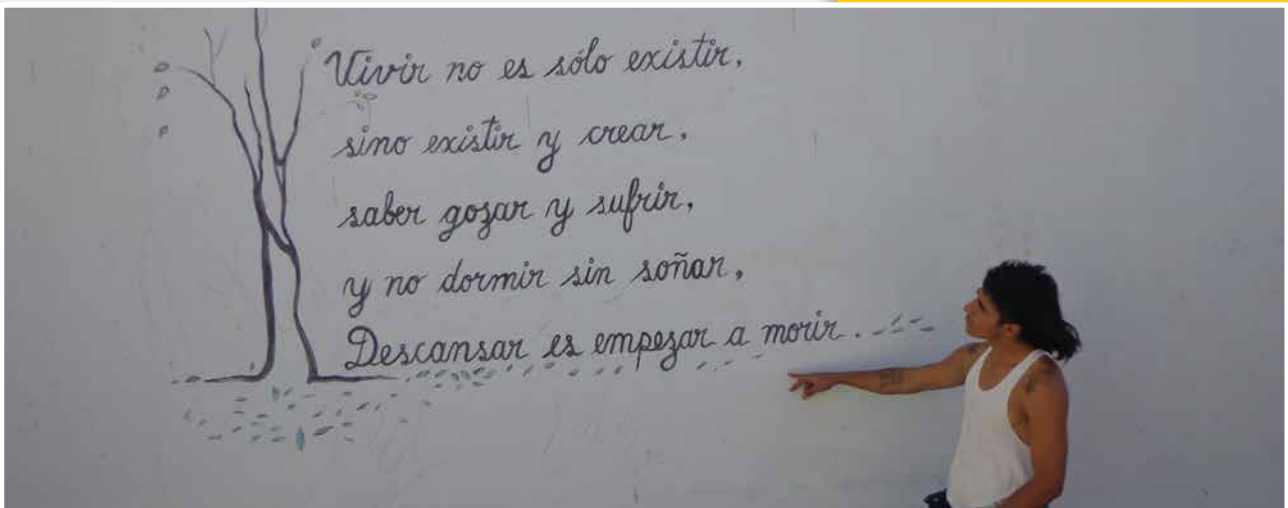 Vivir no es sólo existir,
sino existir y crear,
saber gozar y sufrir,
y no dormir sin soñar,
Descansar es empezar a morir.